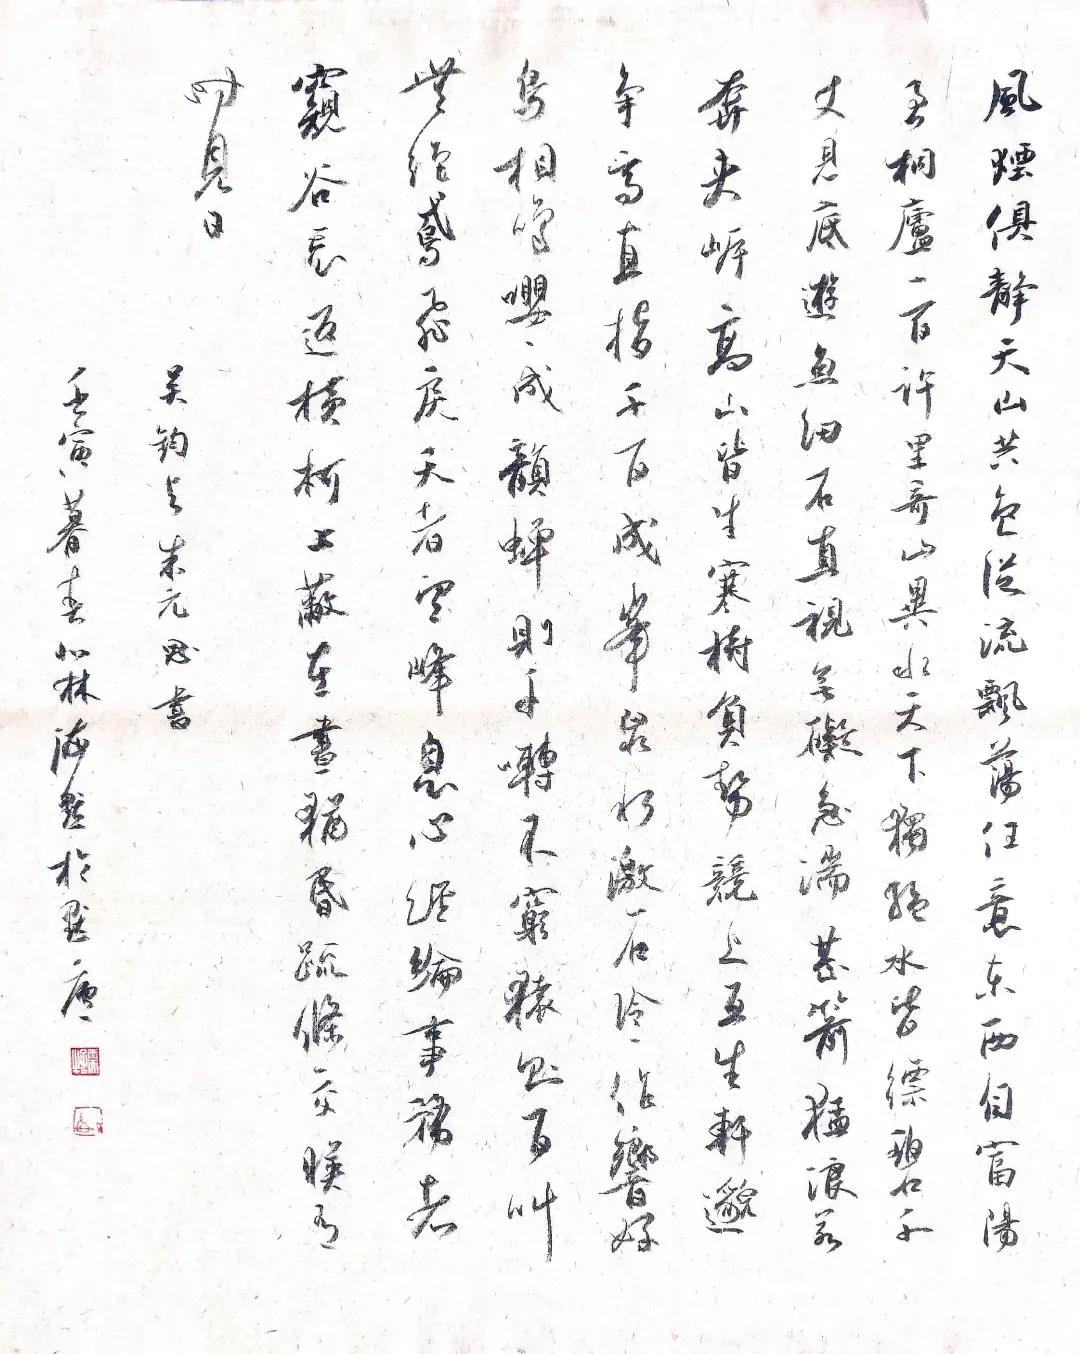 風煙俱靜天山共色從流飄蕩任意東西自富陽
至桐廬一百許里奇山異水天下獨絕水皆縹碧千
丈見底遊魚細石直視無礙急湍甚箭猛浪若
奔夾岸高山皆生寒樹負勢競上互生軒邈
爭高直指千百成峯泉水激石泠泠作響好
鳥相鳴嚶嚶成韻蟬則千囀不窮猿則百叫
無絕鳶飛戾天者望峰息心經綸事務者
窺谷忘返橫柯上蔽在晝猶昏疏條交映有
時見日
吳鈞與朱元思書
壬寅暮春 林海 於 廬